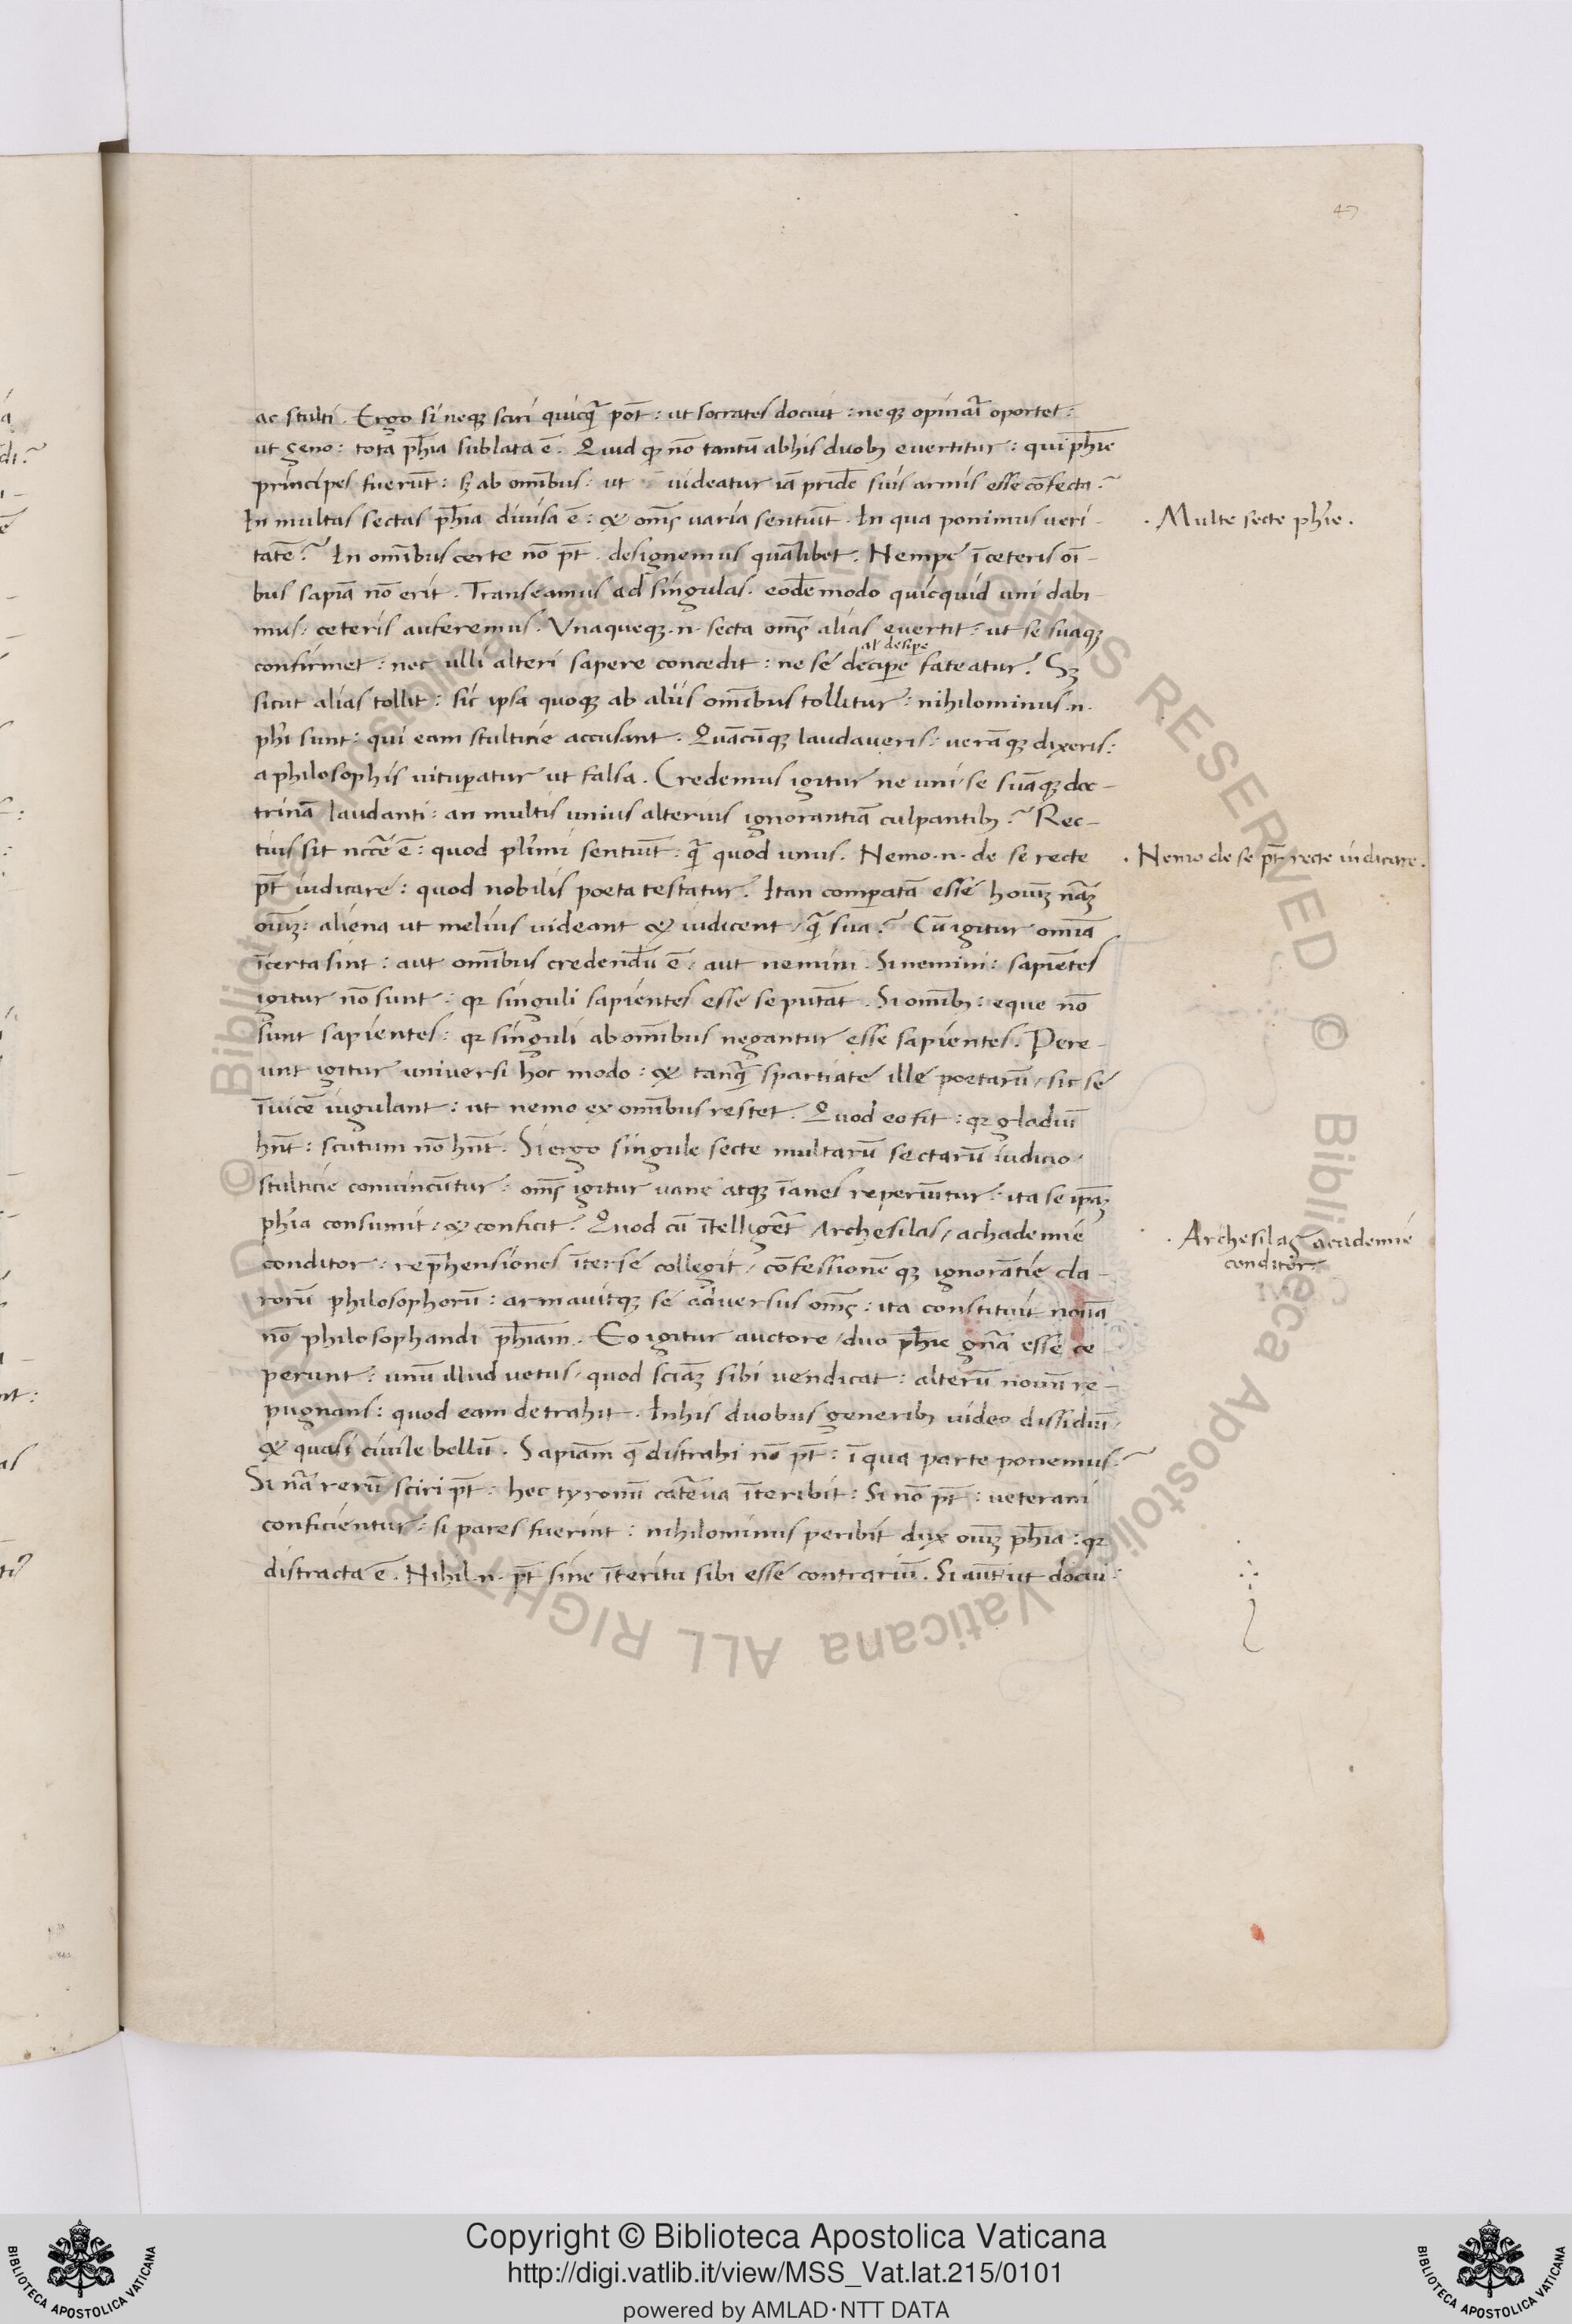 47
ac stulti. Ergo si neqꝫ sciri quicq̄ pōt: ut socrates docuit: neqꝫ opinari oportet:
ut zeno: tota phīa sublata ē. Quid qꝙ nō tantū ab his duobꝫ evertitur: qui phīe
principes fuerūt: sꝫ ab omībus: ut videatur iā pridē suis armis esse cōfecta?
In multas sectas phīa divisa ē: & oms̄ varia sentiūt. In qua ponimus veri-
tatē? In omībus certe nō pt̄. designemus quālibet. Nempe ī ceteris oī-
bus sapīa nō erit. Transeamus ad singulas. eodē modo quicquid uni dabi-
mus: ceteris auferemus. Vnaqueqꝫ .n. secta oms̄ alias evertit: ut se suaqꝫ
al' desipe
confirmet: nec ulli alteri sapere concedit: ne se decipe fateatur. Sꝫ
sicut alias tollit: sic ipsa quoqꝫ ab aliis omībus tollitur: nihilominus .n.
phī sunt: qui eam stulticie accusant. Quācūqꝫ laudaveris: verāqꝫ dixeris:
a philosophis vitupatur ut falsa. Credemus igitur ne uni se suāqꝫ doc-
trinā laudanti: an multis unius alterius ignorantiā culpantibꝫ? Rec-
tius sit nccē ē: quod plīmi sentiūt: q̄ quod unus. Nemo .n. de se recte
pt̄ iudicare: quod nobilis poeta testatur. Itan comparatā esse hoīuꝫ nāꝫ
oīuꝫ: aliena ut melius videant & iudicent / q̄ sua? Cū igitur omīa
īcerta sint: aut omībus credendū ē: aut nemini. Si nemini: sapiētes
igitur nō sunt: qꝛ singuli sapientes esse se putāt. Si omībꝫ: eque nō
sunt sapientes: qꝛ singuli ab omībus negantur esse sapientes. Pere-
unt igitur universi hoc modo: & tanq̄ spartiate ille poetarū / sic se
īvicē iugulant: ut nemo ex omībus restet. Quod eo fit: qꝛ gladiū
hn̄t: scutum nō hn̄t. Si ergo singule secte multarū sectarū iudicio
stulticie convincūtur: oms̄ igitur vane atqꝫ īanes reperiūtur: ita se ipāꝫ
phīa consumit: & conficit. Quod cū ītelligēt Archesilas / achademie
conditor: rephensiones īter se collegit / cōfessionē qꝫ ignorātie cla-
rorū philosophorū: armavitqꝫ se adversus oms̄: ita constituit novā
nō philosophandi phīam. Eo igitur auctore / duo phīe gn̄a esse ce-
perunt: unū illud vetus / quod sciāꝫ sibi vendicat: alterū novū re-
pugnans: quod eam detrahit. In his duobus generibꝫ video dissidiū /
& quasi civile bellū. Sapiam q̄ distrahi nō pt̄: ī qua parte ponemus?
Si nā rerū sciri pt̄: hec tyronū caterva īteribit: Si nō pt̄: veterani
conficientur: si pares fuerint: nihilominus peribit dux oīuꝫ phīa: qꝛ
distracta ē. Nihil .n. pt̄ sine īteritu sibi esse contrariū. Si aūt ut docui:
. Multe secte phīe.
. Nemo de se pt̄ recte iudicare.
. Archesilas academie
conditor
Copyright © Biblioteca Apostolica Vaticana
http://digi.vatlib.it/view/MSS_Vat.lat.215/0101
powered by AMLAD·NTT DATA
BIBLIOTECA APOSTOLICA VATICANA
BIBLIOTECA APOSTOLICA VATICANA